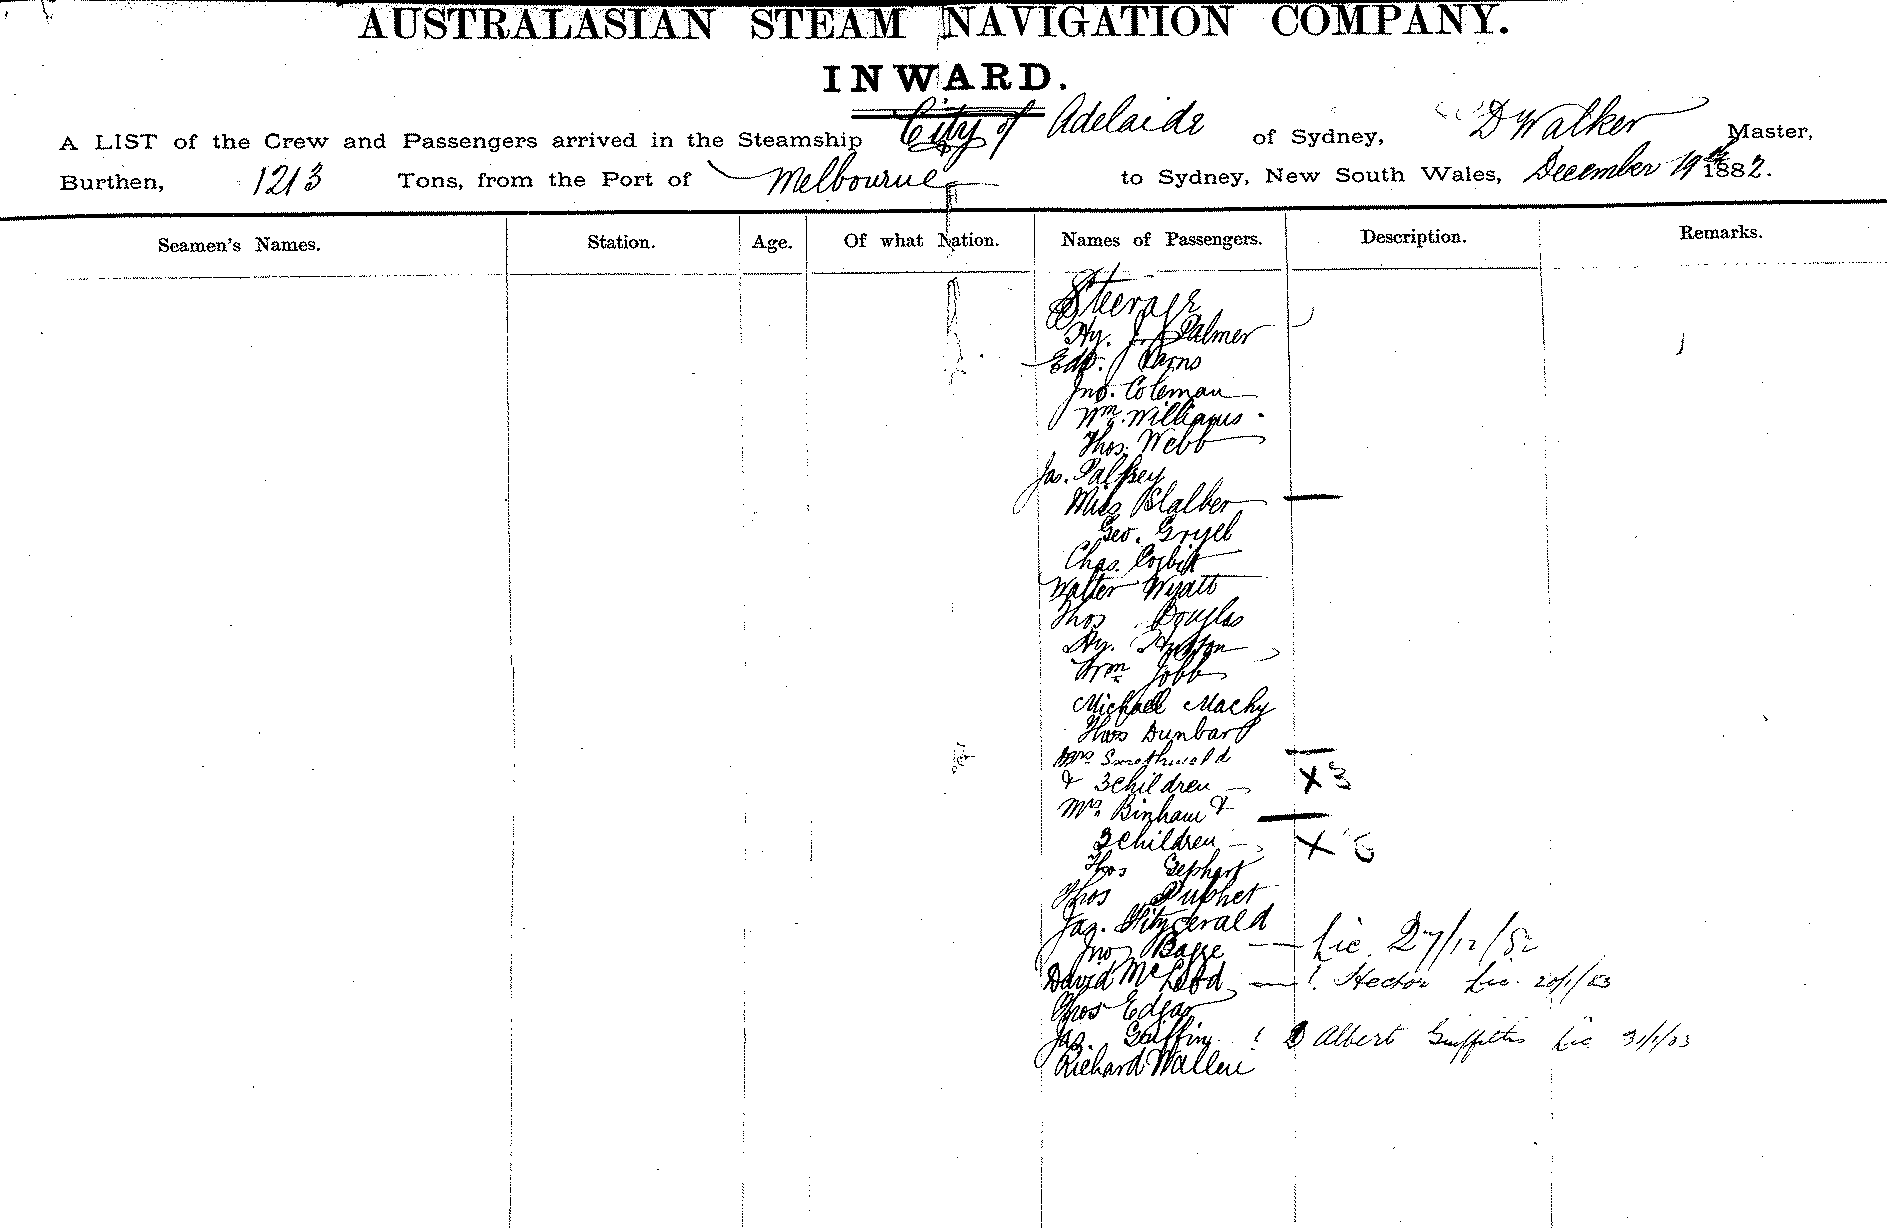 AUSTRALASIAN STEAM NAVIGATION COMPANY.
INWARD.
A LIST of the Crew and Passengers arrived in the Steamship City of Adelaide of Sydney, D Walker Master,
Burthen, 1213 Tons, from the Port of Melbourne to Sydney, New South Wales, December 19th 1882.
Seamen's Names. Station. Age. Of what Nation. Names of Passengers. Description. Remarks.
Steerage
Hy. J. Palmer
Edw.
Jno. Coleman
Wm. Williams
Thos. Webb
Jas. Palfrey
Miss Blalber
Geo. Gryel
Chas. Corbitt
Walter Wyatt
Thos Douglas
Hy.
Wm Jobb
Michael Machy
Thos Dunbar
Mrs
& 3 children X 3
Mrs Binham &
3 children X 6
Thos Gephart
Thos
Jas. Fitzgerald
Jno Bagge Lic. 27/12/82
David McLeod ! Hector Lic. 20/1/83
Thos Edgar
Jas. Griffin ! Albert Griffiths Lic 31/1/83
Richard Wallen